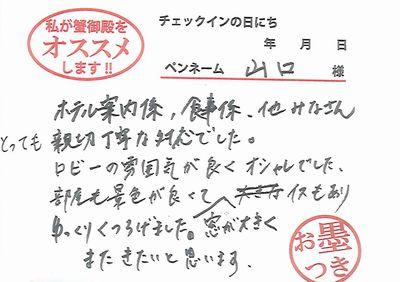 私が蟹御殿を
オススメ
します!!
チェックインの日にち
年 月 日
ペンネーム 山口 様
ホテル案内係,食事係、他みなさん
とっても親切丁寧な対応でした。
ロビーの雰囲気が良くオシャレでした、
部屋も景色が良くて イスもあり
ゆっくりくつろげました。窓が大きく
またきたいと思います.
お墨
つき